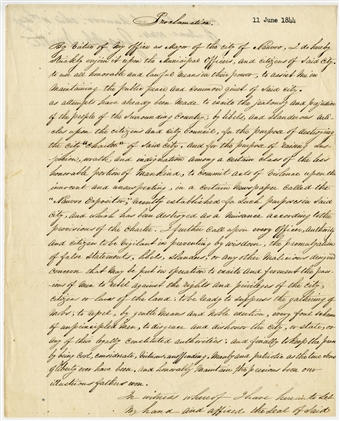 Proclamation.
11 June 1844
By Virtue of my office as Mayor of the city of Nauvoo, I do hereby
Strictly enjoin it upon the Municipal Officers, and citizens of Said City,
to use all honorable and lawful means in their power, to assist me in
maintaining the public peace and common quiet of Said city.
as attempts have already been made to excite the jealousy and prejudice
of the people of the Surrounding County, by libels, and slanderous arti-
cles upon the citizens and City Council, for the purpose of destroying
the City "Charter" of Said City, and for the purpose of raising Sus-
picion, wrath, and indignation among a certain class of the less
honorable portion of Mankind, to commit acts of violence upon the
innocent and unsuspecting, in a certain newspaper called the
"Nauvoo Expositor," recently established for such purposes in Said
City, and which has been destroyed as a nuisance according to the
provisions of the Charter. I further Call upon every Officer, authority
and citizen to be Vigilant in preventing by wisdom, the promulgation
of false Statements, libels, Slanders, or any other Malicious designed
concern that may be put in operation to excite and ferment the pas-
sions of men to rebel against the rights and privileges of the city,
citizens or laws of the land; to be ready to suppress the gathering of
mobs; to repel, by gentle means and noble exertion, every foul scheme
of unprincipled men, to disgrace and dishonor the city, or state, or
any of their legally constituted authorities; and finally to keep the peace
by being Cool, considerate, Virtuous, unoffending, Manly and patriotic as the true sons
of liberty ever have been, and honorably maintain the precious boon our
illustrious fathers won.
In witness whereof I have hereunto Set
my hand and affixed the Seal of Said